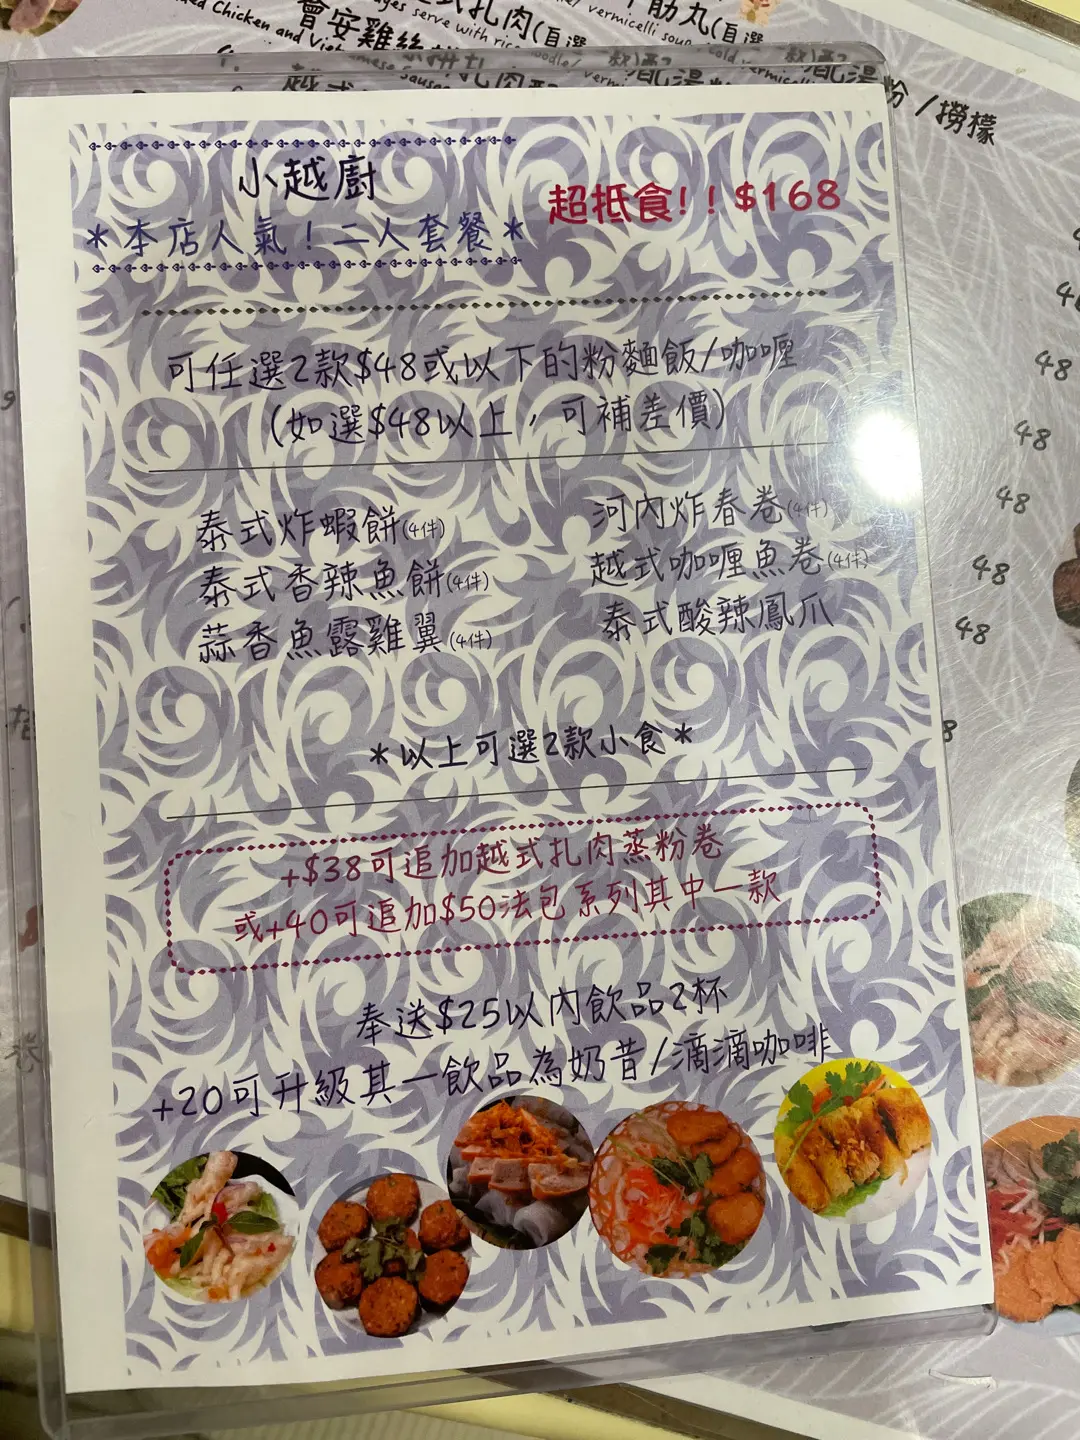 會安雞絲
小越廚
超抵食!! $168
*本店人氣!二人套餐*
可任選2款$48或以下的粉麵飯/咖喱
(如選$48以上，可補差價)
泰式炸蝦餅(4件)
河內炸春卷(4件)
泰式香辣魚餅(4件)
越式咖喱魚卷(4件)
蒜香魚露雞翼(4件)
泰式酸辣鳳爪
*以上可選2款小食*
+$38可追加越式扎肉蒸粉卷
或+40可追加$50法包系列其中一款
奉送$25以內飲品2杯
+20可升級其一飲品為奶昔/滴滴咖啡
粉/撈檬
48
48
48
48
48